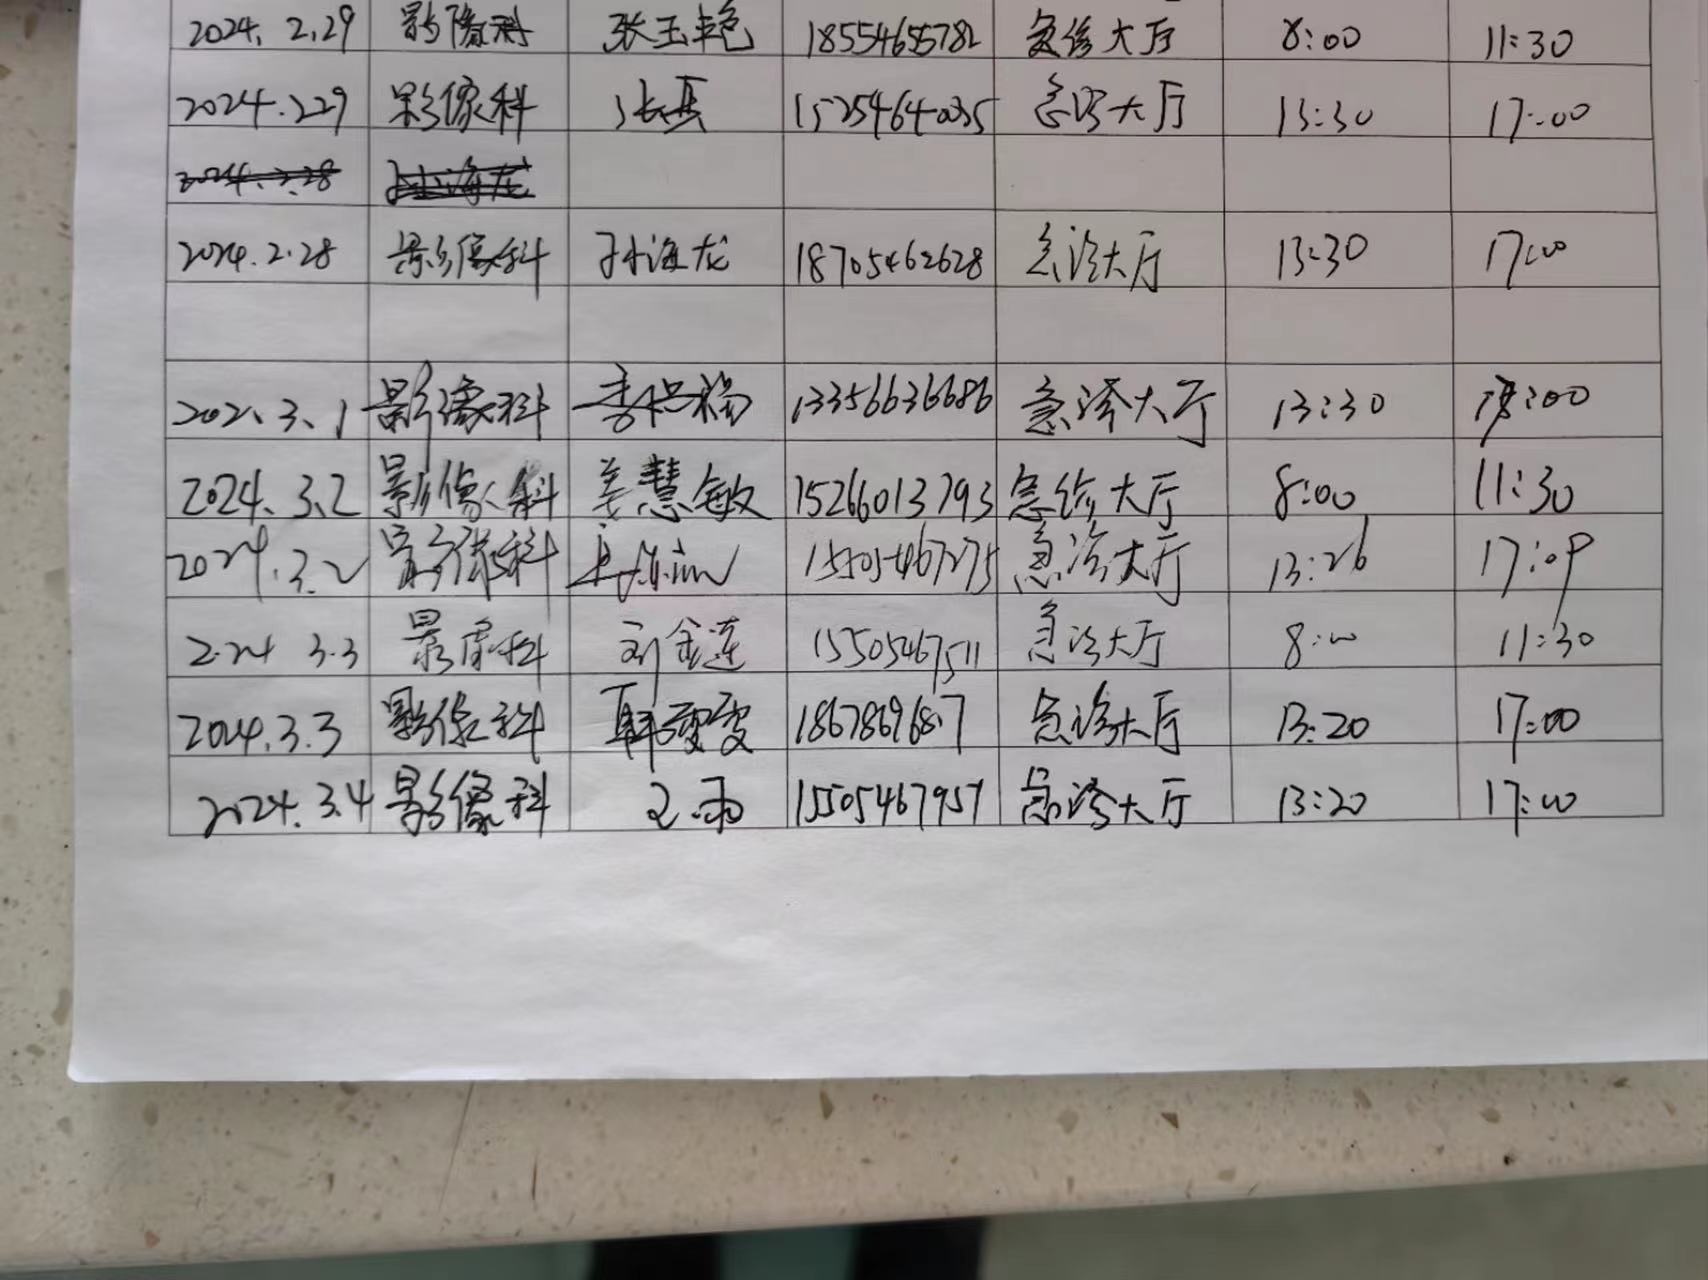 2024.2.29 影像科 张玉艳 18554655782 急诊大厅 8:00 11:30
2024.2.29 影像科 张真 15254640035 急诊大厅 13:30 17:00
2024.2.28 孙海龙
2024.2.28 影像科 孙海龙 18705462628 急诊大厅 13:30 17:00
202.3.1 影像科 13356636686 急诊大厅 13:30 17:00
2024.3.2 影像科 姜慧敏 15266013793 急诊大厅 8:00 11:30
2024.3.2 影像科 15505467275 急诊大厅 13:26 17:09
2024 3.3 影像科 刘金莲 15505467511 急诊大厅 8:00 11:30
2024.3.3 影像科 急诊大厅 13:20 17:00
2024.3.4 影像科 15505467957 急诊大厅 13:20 17:00